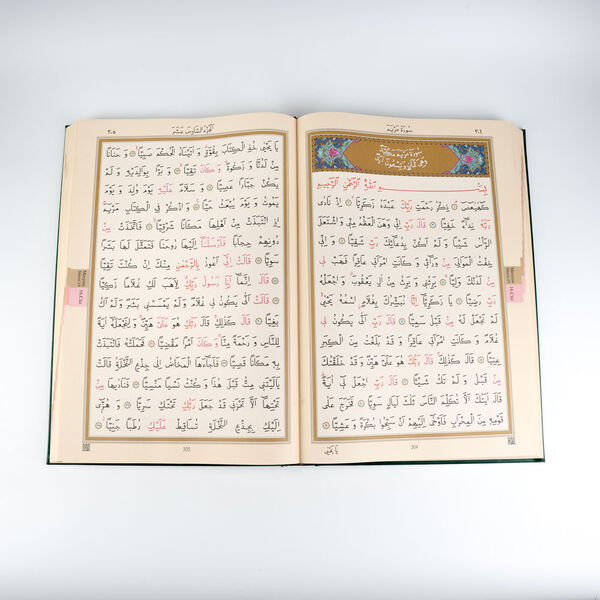 سُورَةُ مَرْيَمَ
٣٠٤
سُورَةُ مَرْيَمَ مَكِّيَّةٌ
وَهِيَ ثَمَانٍ وَتِسْعُونَ اٰيَةً
بِسْمِ اللّٰهِ الرَّحْمٰنِ الرَّحِيمِ
كٓهٰيٰعٓصٓ ۝ ذِكْرُ رَحْمَتِ رَبِّكَ عَبْدَهُ زَكَرِيَّا ۝ اِذْ نَادٰى
رَبَّهُ نِدَاءً خَفِيًّا ۝ قَالَ رَبِّ اِنِّي وَهَنَ الْعَظْمُ مِنِّي وَاشْتَعَلَ
الرَّأْسُ شَيْبًا وَ لَمْ اَكُنْ بِدُعَائِكَ رَبِّ شَقِيًّا ۝ وَ اِنِّي
خِفْتُ الْمَوَالِيَ مِنْ وَرَاءِي وَ كَانَتِ امْرَاَتِي عَاقِرًا فَهَبْ لِي
مِنْ لَدُنْكَ وَلِيًّا ۝ يَرِثُنِي وَ يَرِثُ مِنْ اٰلِ يَعْقُوبَ وَ اجْعَلْهُ
رَبِّ رَضِيًّا ۝ يَا زَكَرِيَّا اِنَّا نُبَشِّرُكَ بِغُلَامٍ اسْمُهُ يَحْيٰى
لَمْ نَجْعَلْ لَهُ مِنْ قَبْلُ سَمِيًّا ۝ قَالَ رَبِّ اَنّٰى يَكُونُ لِي
غُلَامٌ وَ كَانَتِ امْرَاَتِي عَاقِرًا وَ قَدْ بَلَغْتُ مِنَ الْكِبَرِ
عِتِيًّا ۝ قَالَ كَذٰلِكَ قَالَ رَبُّكَ هُوَ عَلَيَّ هَيِّنٌ وَ قَدْ خَلَقْتُكَ
مِنْ قَبْلُ وَ لَمْ تَكُ شَيْئًا ۝ قَالَ رَبِّ اجْعَلْ لِي اٰيَةً
قَالَ اٰيَتُكَ اَلَّا تُكَلِّمَ النَّاسَ ثَلٰثَ لَيَالٍ سَوِيًّا ۝ فَخَرَجَ عَلٰى
قَوْمِهِ مِنَ الْمِحْرَابِ فَاَوْحٰى اِلَيْهِمْ اَنْ سَبِّحُوا بُكْرَةً وَ عَشِيًّا ۝
304
يَا يَحْيٰى
اَلْجُزْءُ السَّادِسَ عَشَرَ
٣٠٥
يَا يَحْيٰى خُذِ الْكِتَابَ بِقُوَّةٍ وَ اٰتَيْنَاهُ الْحُكْمَ صَبِيًّا ۝ وَ حَنَانًا
مِنْ لَدُنَّا وَ زَكٰوةً وَ كَانَ تَقِيًّا ۝ وَ بَرًّا بِوَالِدَيْهِ وَ لَمْ
يَكُنْ جَبَّارًا عَصِيًّا ۝ وَ سَلَامٌ عَلَيْهِ يَوْمَ وُلِدَ وَ يَوْمَ
يَمُوتُ وَ يَوْمَ يُبْعَثُ حَيًّا ۝ وَ اذْكُرْ فِي الْكِتَابِ مَرْيَمَ
اِذِ انْتَبَذَتْ مِنْ اَهْلِهَا مَكَانًا شَرْقِيًّا ۝ فَاتَّخَذَتْ مِنْ
دُونِهِمْ حِجَابًا فَاَرْسَلْنَا اِلَيْهَا رُوحَنَا فَتَمَثَّلَ لَهَا بَشَرًا
سَوِيًّا ۝ قَالَتْ اِنِّي اَعُوذُ بِالرَّحْمٰنِ مِنْكَ اِنْ كُنْتَ تَقِيًّا
۝ قَالَ اِنَّمَا اَنَا رَسُولُ رَبِّكِ لِاَهَبَ لَكِ غُلَامًا زَكِيًّا
۝ قَالَتْ اَنّٰى يَكُونُ لِي غُلَامٌ وَ لَمْ يَمْسَسْنِي بَشَرٌ وَ لَمْ اَكُ
بَغِيًّا ۝ قَالَ كَذٰلِكِ قَالَ رَبُّكِ هُوَ عَلَيَّ هَيِّنٌ وَ لِنَجْعَلَهُ اٰيَةً
لِلنَّاسِ وَ رَحْمَةً مِنَّا وَ كَانَ اَمْرًا مَقْضِيًّا ۝ فَحَمَلَتْهُ فَانْتَبَذَتْ
بِهِ مَكَانًا قَصِيًّا ۝ فَاَجَاءَهَا الْمَخَاضُ اِلٰى جِذْعِ النَّخْلَةِ قَالَتْ
يَالَيْتَنِي مِتُّ قَبْلَ هٰذَا وَ كُنْتُ نَسْيًا مَنْسِيًّا ۝ فَنَادٰيهَا مِنْ
تَحْتِهَا اَلَّا تَحْزَنِي قَدْ جَعَلَ رَبُّكِ تَحْتَكِ سَرِيًّا ۝ وَ هُزِّي
اِلَيْكِ بِجِذْعِ النَّخْلَةِ تُسَاقِطْ عَلَيْكِ رُطَبًا جَنِيًّا ۝
305